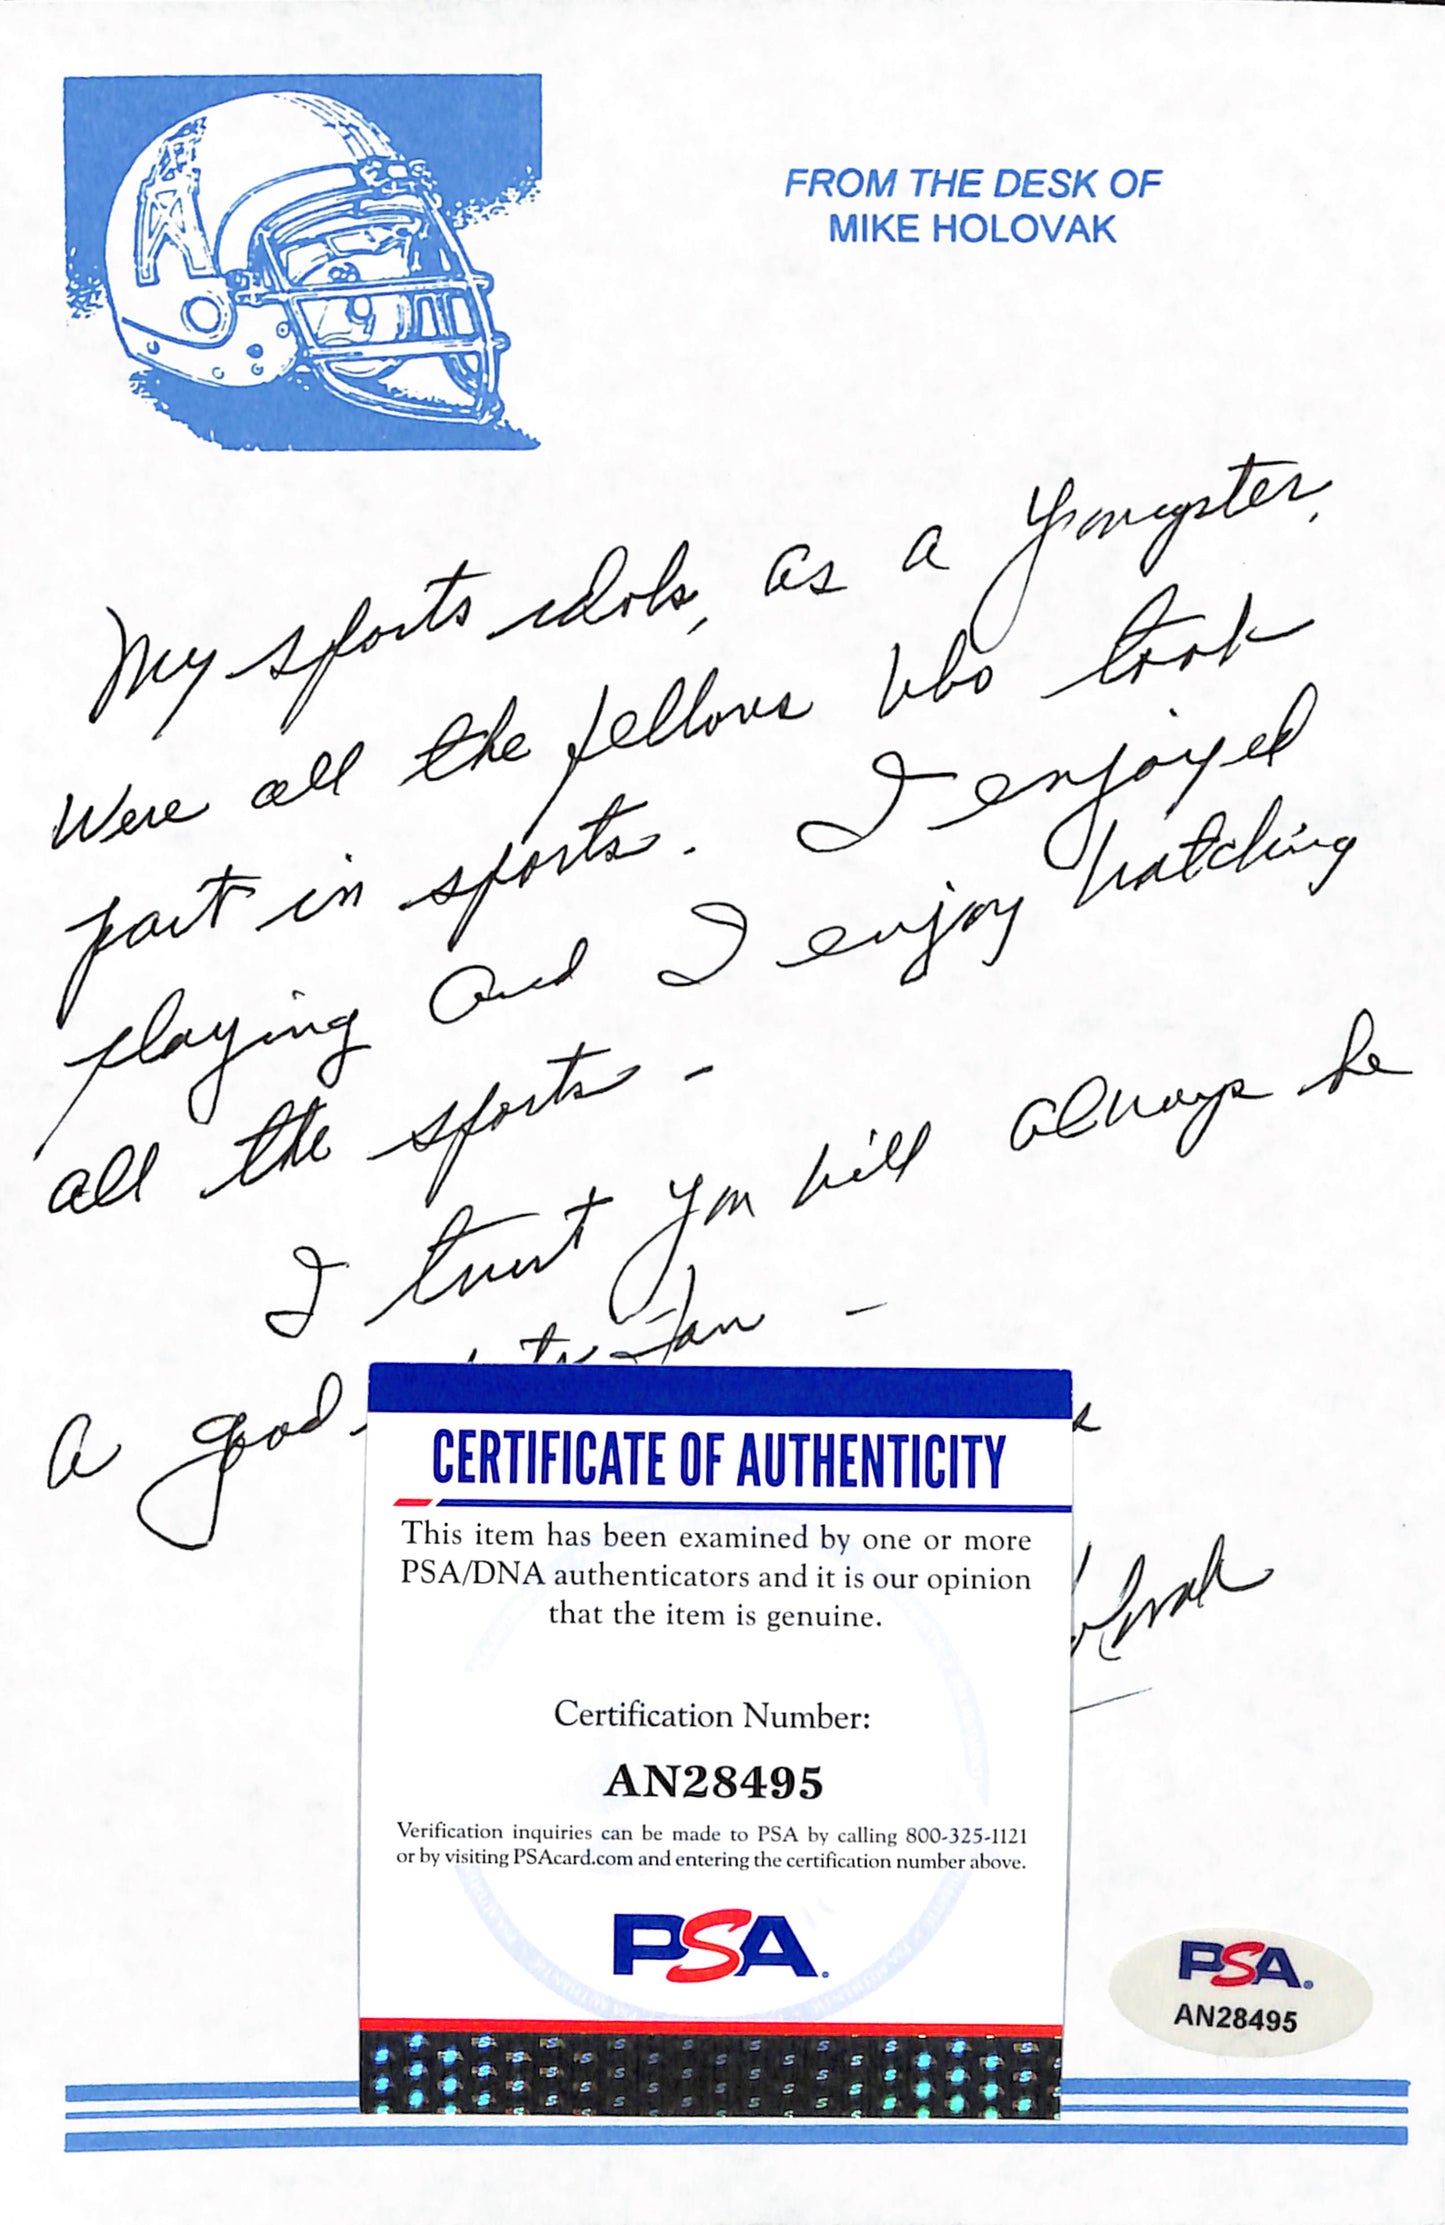 FROM THE DESK OF
MIKE HOLOVAK
My sports idols, as a youngster,
were all the fellows who took
part in sports. I enjoyed
playing and I enjoy watching
all the sports -
I trust you will always be
a good fan -
Holovak
CERTIFICATE OF AUTHENTICITY
This item has been examined by one or more
PSA/DNA authenticators and it is our opinion
that the item is genuine.
Certification Number:
AN28495
Verification inquiries can be made to PSA by calling 800-325-1121
or by visiting PSAcard.com and entering the certification number above.
PSA
PSA
AN28495